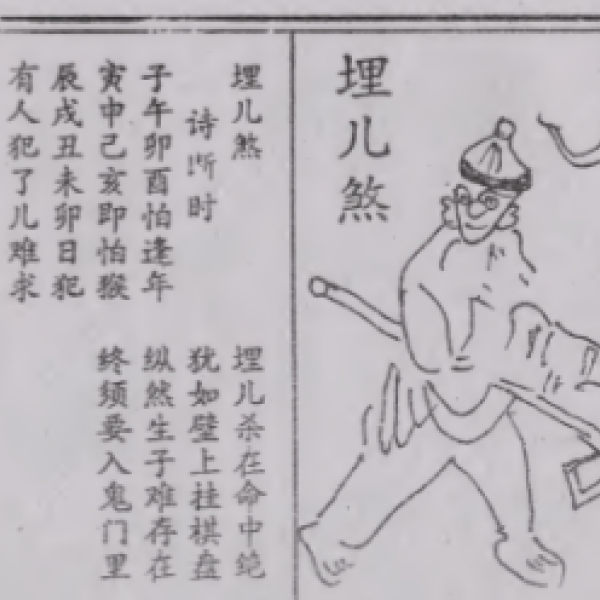 埋儿煞
埋儿煞
诗断时
子午卯酉怕逢年
寅申己亥即怕猴
辰戌丑未卯日犯
有人犯了儿难求
埋儿杀在命中绝
犹如壁上挂棋盘
纵然生子难存在
终须要入鬼门里